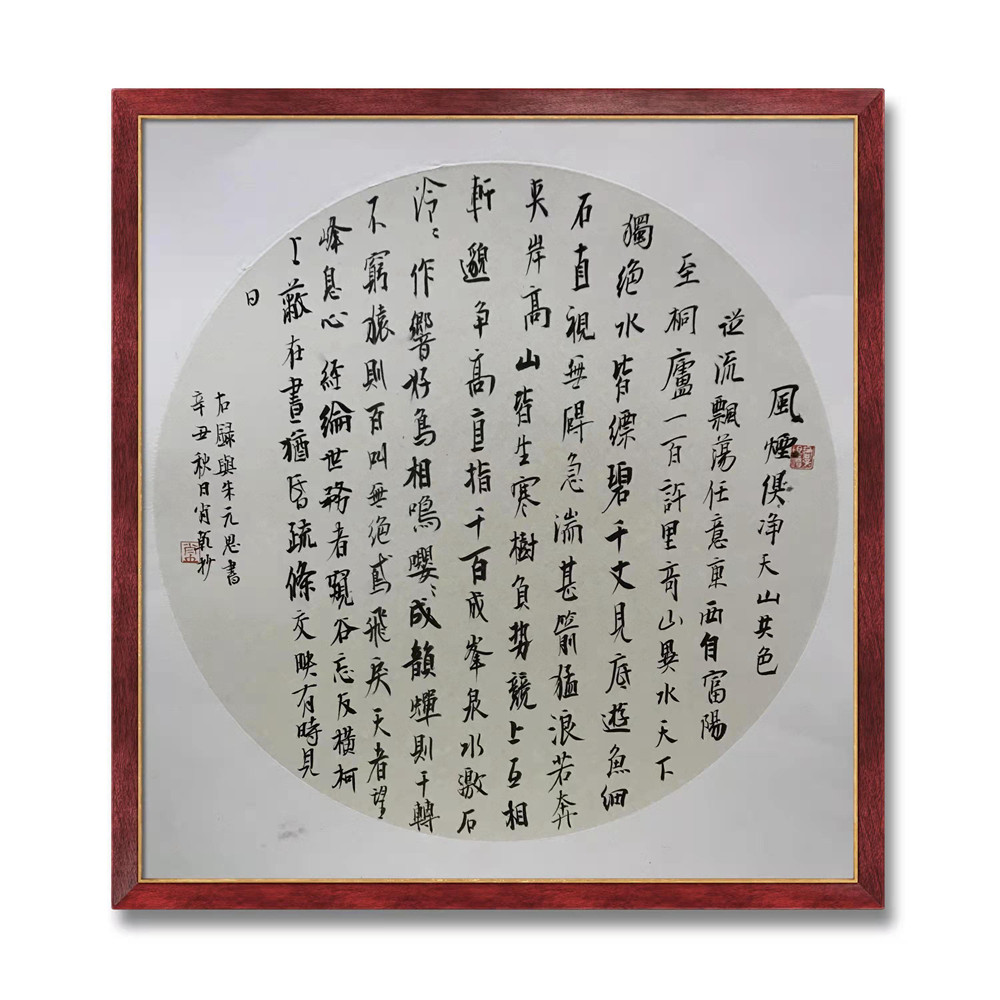 風煙俱净天山共色
從流飄蕩任意東西自富陽
至桐廬一百許里奇山異水天下
獨絕水皆縹碧千丈見底遊魚細
石直視無碍急湍甚箭猛浪若奔
夾岸高山皆生寒樹負勢競上互相
軒邈争高直指千百成峯泉水激石
泠〻作響好鳥相鳴嚶〻成韻蟬則千轉
不窮猿則百叫無絕鳶飛戾天者望
峰息心經綸世務者窺谷忘反橫柯
上蔽在晝猶昏疏條交映有時見
日
右録與朱元思書
辛丑秋日肖乾抄